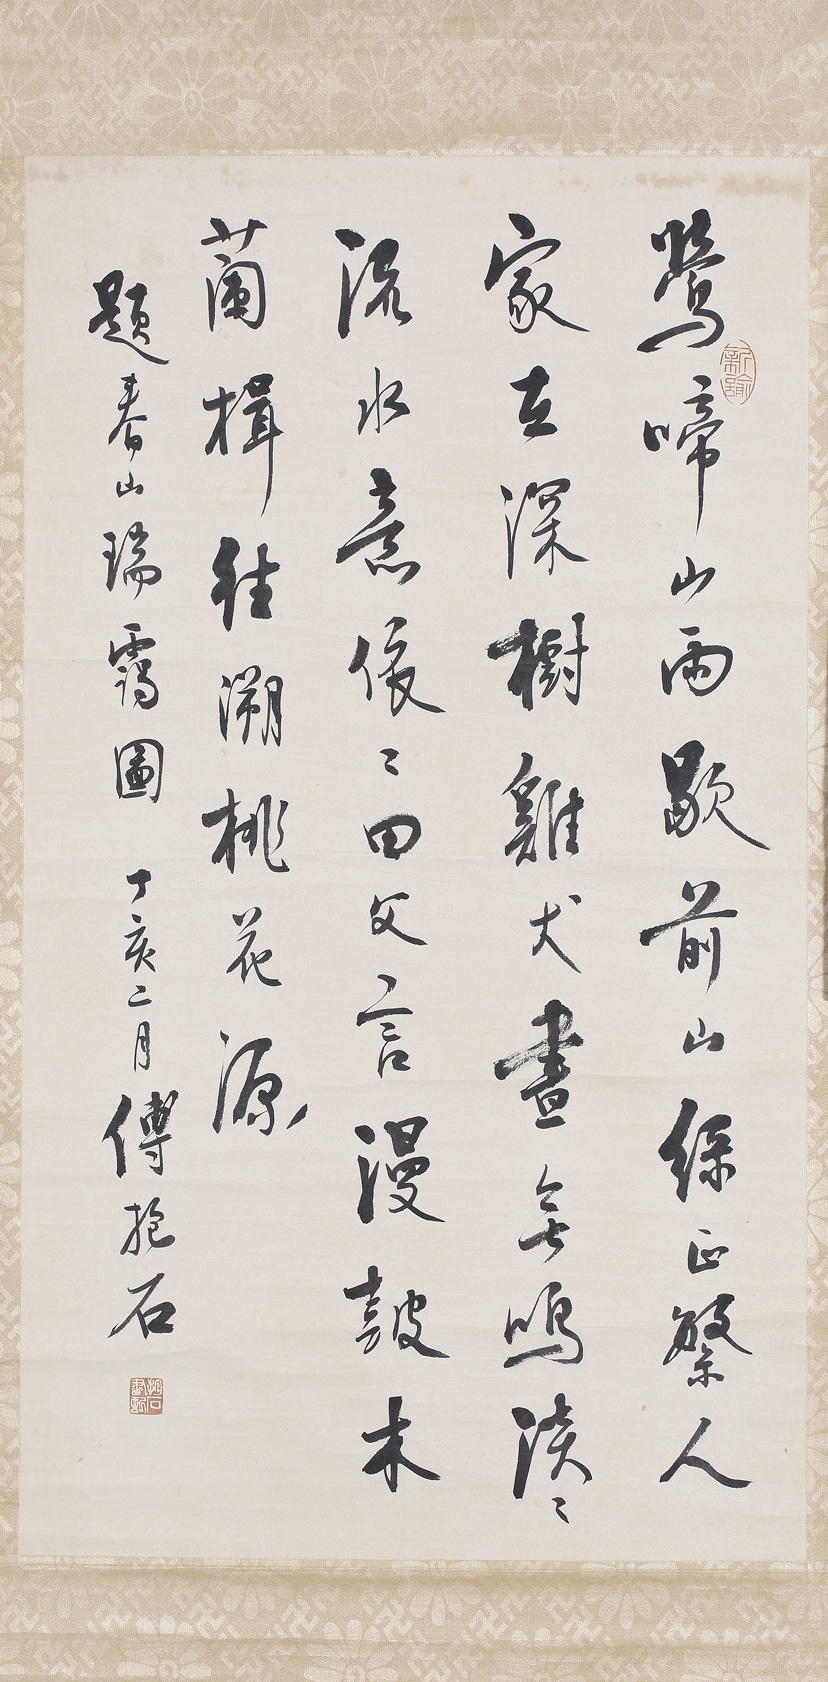 鶯啼山雨歇前山綠正繁人
家在深樹雞犬晝無鳴淡〻
流水意依〻田父言漫鼓木
蘭楫往溯桃花源
題春山瑞靄圖 丁亥二月傅抱石
新喻